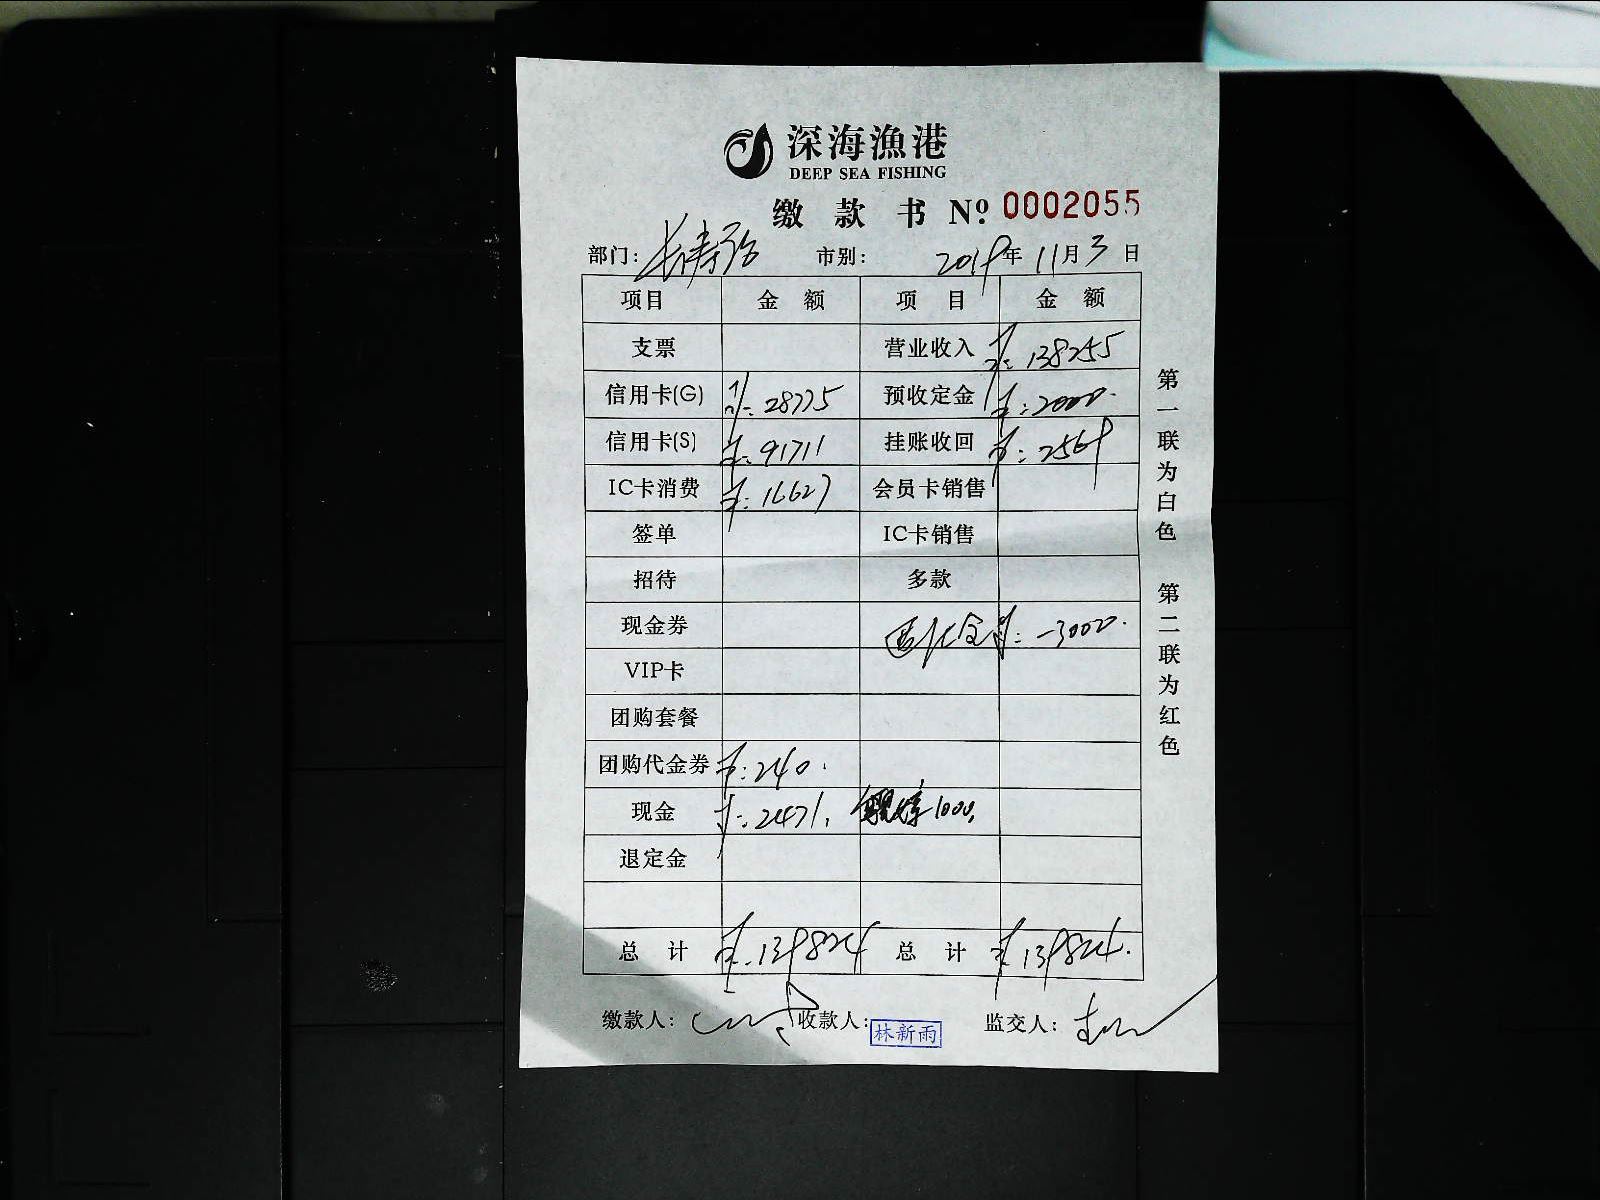 深海漁港
DEEP SEA FISHING
缴款书 Nº 0002055
部门: 长寿路 市别: 2019年11月3日
项目 金额 项目 金额
支票 营业收入 ¥:138255
信用卡(G) ¥:28775 预收定金 ¥:2000.
信用卡(S) ¥:91711 挂账收回 ¥:2569
IC卡消费 ¥:16627 会员卡销售
签单 IC卡销售
招待 多款
现金券 ¥:-3000.
VIP卡
团购套餐
团购代金券 ¥:240.
现金 ¥:2471. 1000.
退定金
总计 ¥:139824 总计 ¥:139824.
缴款人: 收款人: 林新雨 监交人:
第一联为白色 第二联为红色